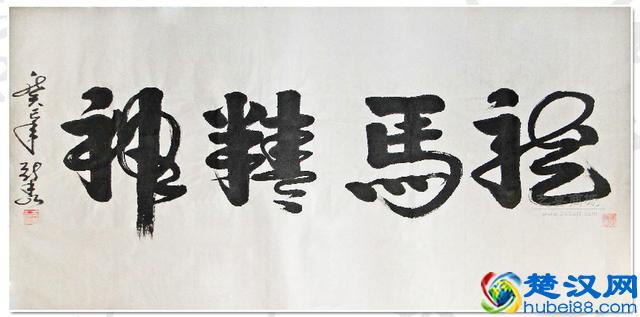 龍馬精神
癸巳年
楚汉网
hubei88.com